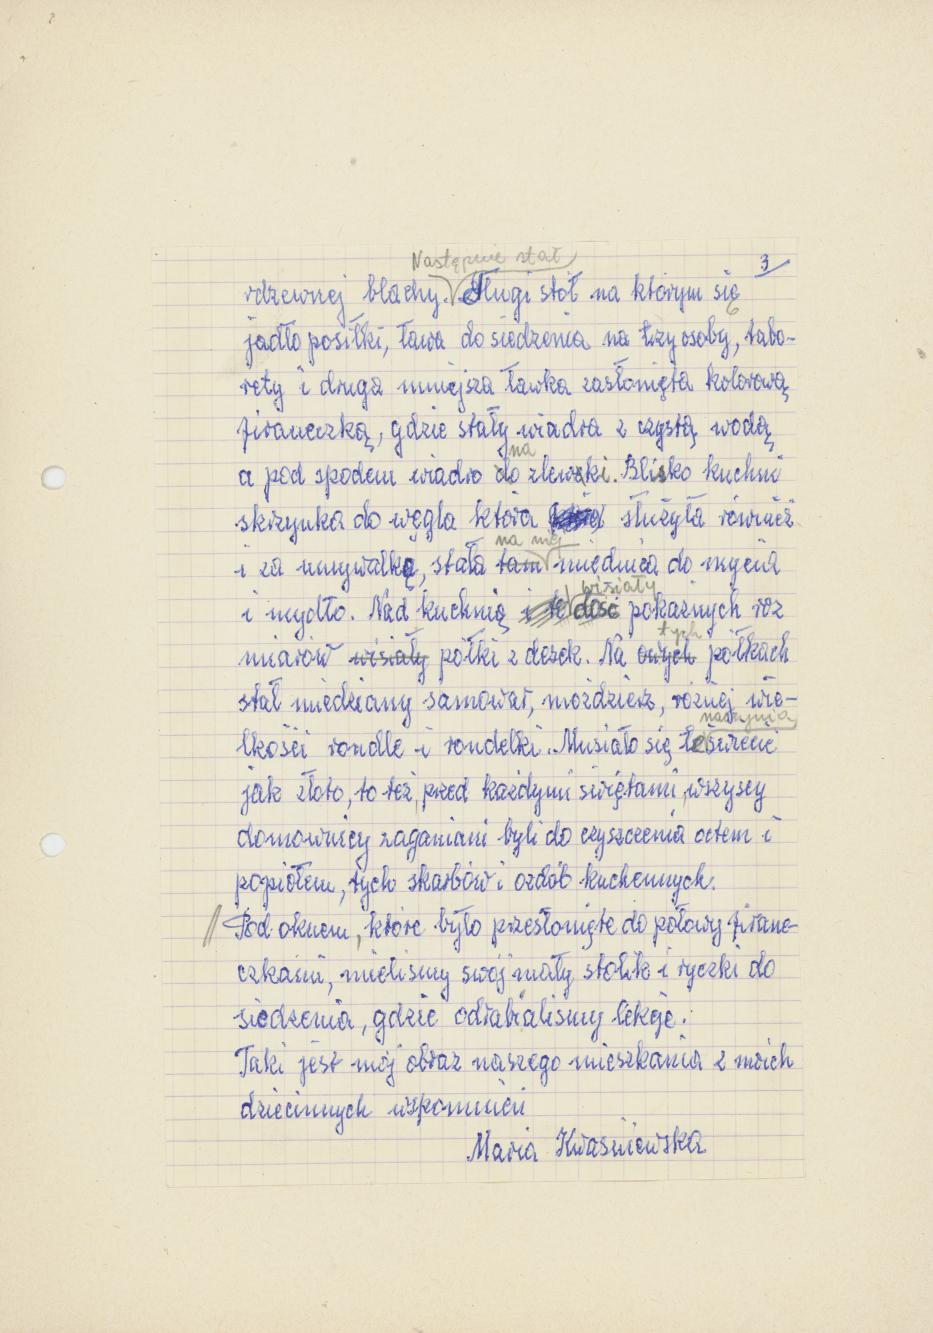 3
Następnie stał
rdzewnej blachy. Długi stół na którym się
jadło posiłki, ława do siedzenia na trzy osoby, tabo-
rety i druga mniejsza ławka zasłonięta kolorową
firaneczką, gdzie stały wiadra z czystą wodą
na
a pod spodem wiadro do zlewki. Blisko kuchni
skrzynka do węgla która służyła również
na niej
i za umywalkę, stała tam miednica do mycia
wisiały
i mydło. Nad kuchnią i dość pokaźnych roz
tych
miarów wisiały półki z desek. Na owych półkach
stał miedziany samowar, moździerz, różnej wie-
naczynia
lkości rondle i rondelki. Musiało się to świecić
jak złoto, to też, przed każdymi świętami, wszyscy
domownicy zaganiani byli do czyszczenia octem i
popiołem, tych skarbów i ozdób kuchennych.
Pod oknem, które było przesłonięte do połowy firane-
czkami, mieliśmy swój mały stolik i ryczki do
siedzenia, gdzie odrabialiśmy lekcje.
Taki jest mój obraz naszego mieszkania z moich
dziecinnych wspomnień
Maria Kwaśniewska